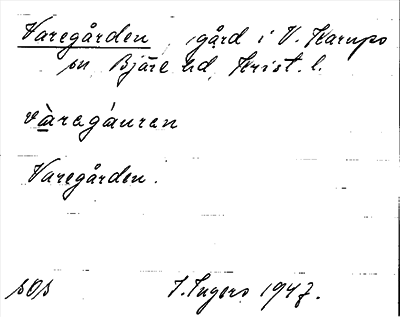 Varegården, gård i V. Karups
sn, Bjäre hd, Krist. l.
vàragáuren
Varegården.
sOs I. Ingers 1947.